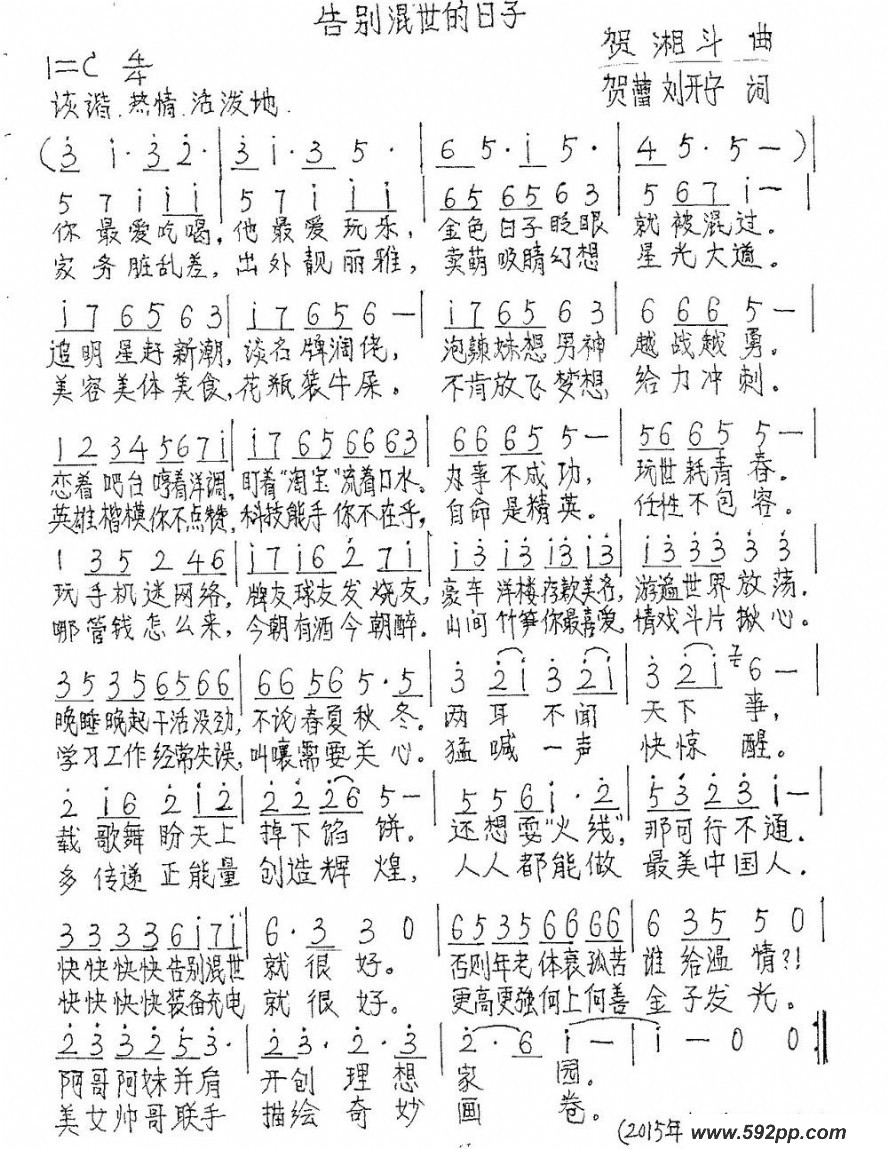 告别混世的日子
贺湘斗 曲
1=C 4/4
贺蕾 刘开孑 词
诙谐.热情.活泼地.
(3 i·3 2·|3 i·3 5·|6 5·i 5·|4 5·5 —)|
5 7 i i i|5 7 i i i|65 65 6 3|5 67 i —|
你最爱吃喝,他最爱玩乐,金色日子眨眼就被混过。
家务脏乱差,出外靓丽雅,卖萌吸睛幻想星光大道。
i7 65 6 3|i7 65 6 —|i7 65 6 3|6 66 5 —|
追明星赶新潮,谈名牌润佬,泡辣妹想男神越战越勇。
美容美体美食,花瓶装牛屎。不肯放飞梦想给力冲刺。
12 34 56 7i|i7 65 66 63|66 65 5 —|56 65 5 —|
恋着吧台哼着洋调,盯着“淘宝”流着口水。办事不成功,玩世耗青春。
英雄楷模你不点赞,科技能手你不在乎,自命是精英。任性不包容。
1 35 2 46|i7 i6 2 7i|i3 i3 i3 i3|i3 33 3 3|
玩手机迷网络,牌友球友发烧友,豪车洋楼存款美名,游遍世界放荡.
哪管钱怎么来,今朝有酒今朝醉.山间竹笋你最喜爱,情戏斗片揪心。
35 35 65 66|66 56 5·5|3 2i 3 2i|3 2i 7 6 —|
晚睡晚起干活没劲,不论春夏秋冬。两耳不闻天下事,
学习工作经常失误,叫嚷需要关心。猛喊一声快惊醒。
2 i6 2 i2|22 26 5 —|5 5 6 i·2|53 23 i —|
载歌舞盼天上掉下馅饼。还想耍“火线”,那可行不通.
多传递正能量创造辉煌,人人都能做最美中国人.
33 33 6i 7i|6·3 3 0|65 35 66 66|6 35 5 0|
快快快快告别混世就很好。否则年老体衰孤苦谁给温情?!
快快快快装备充电就很好.更高更强何上何善金子发光。
23 32 5 3·|2 3·2·3|2·6 i —|i — 0 0:‖
阿哥阿妹并肩开创理想家园。
美女帅哥联手描绘奇妙画卷。
(2015年 www.592pp.com